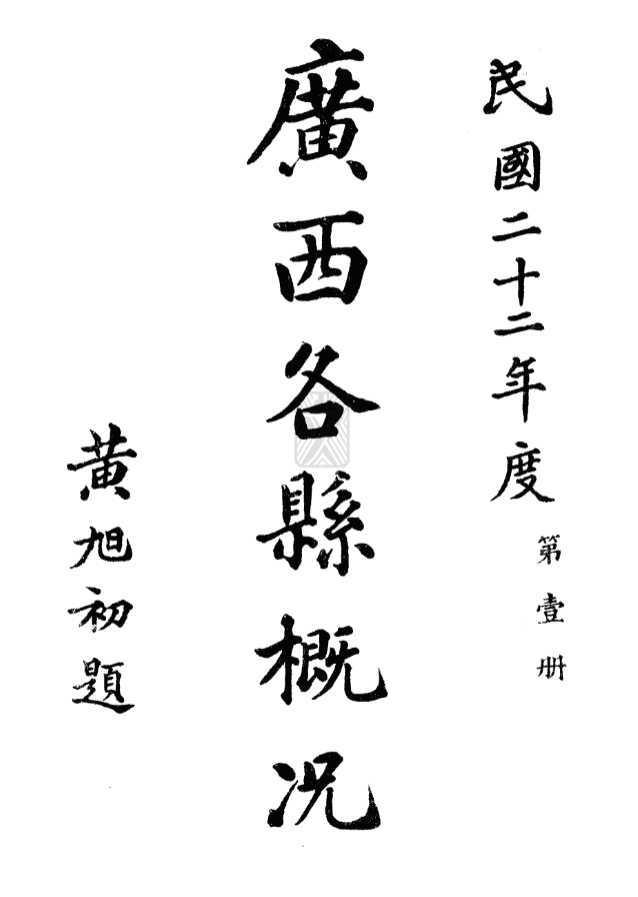 民國二十二年度
第壹册
廣西各縣概况
黄旭初題